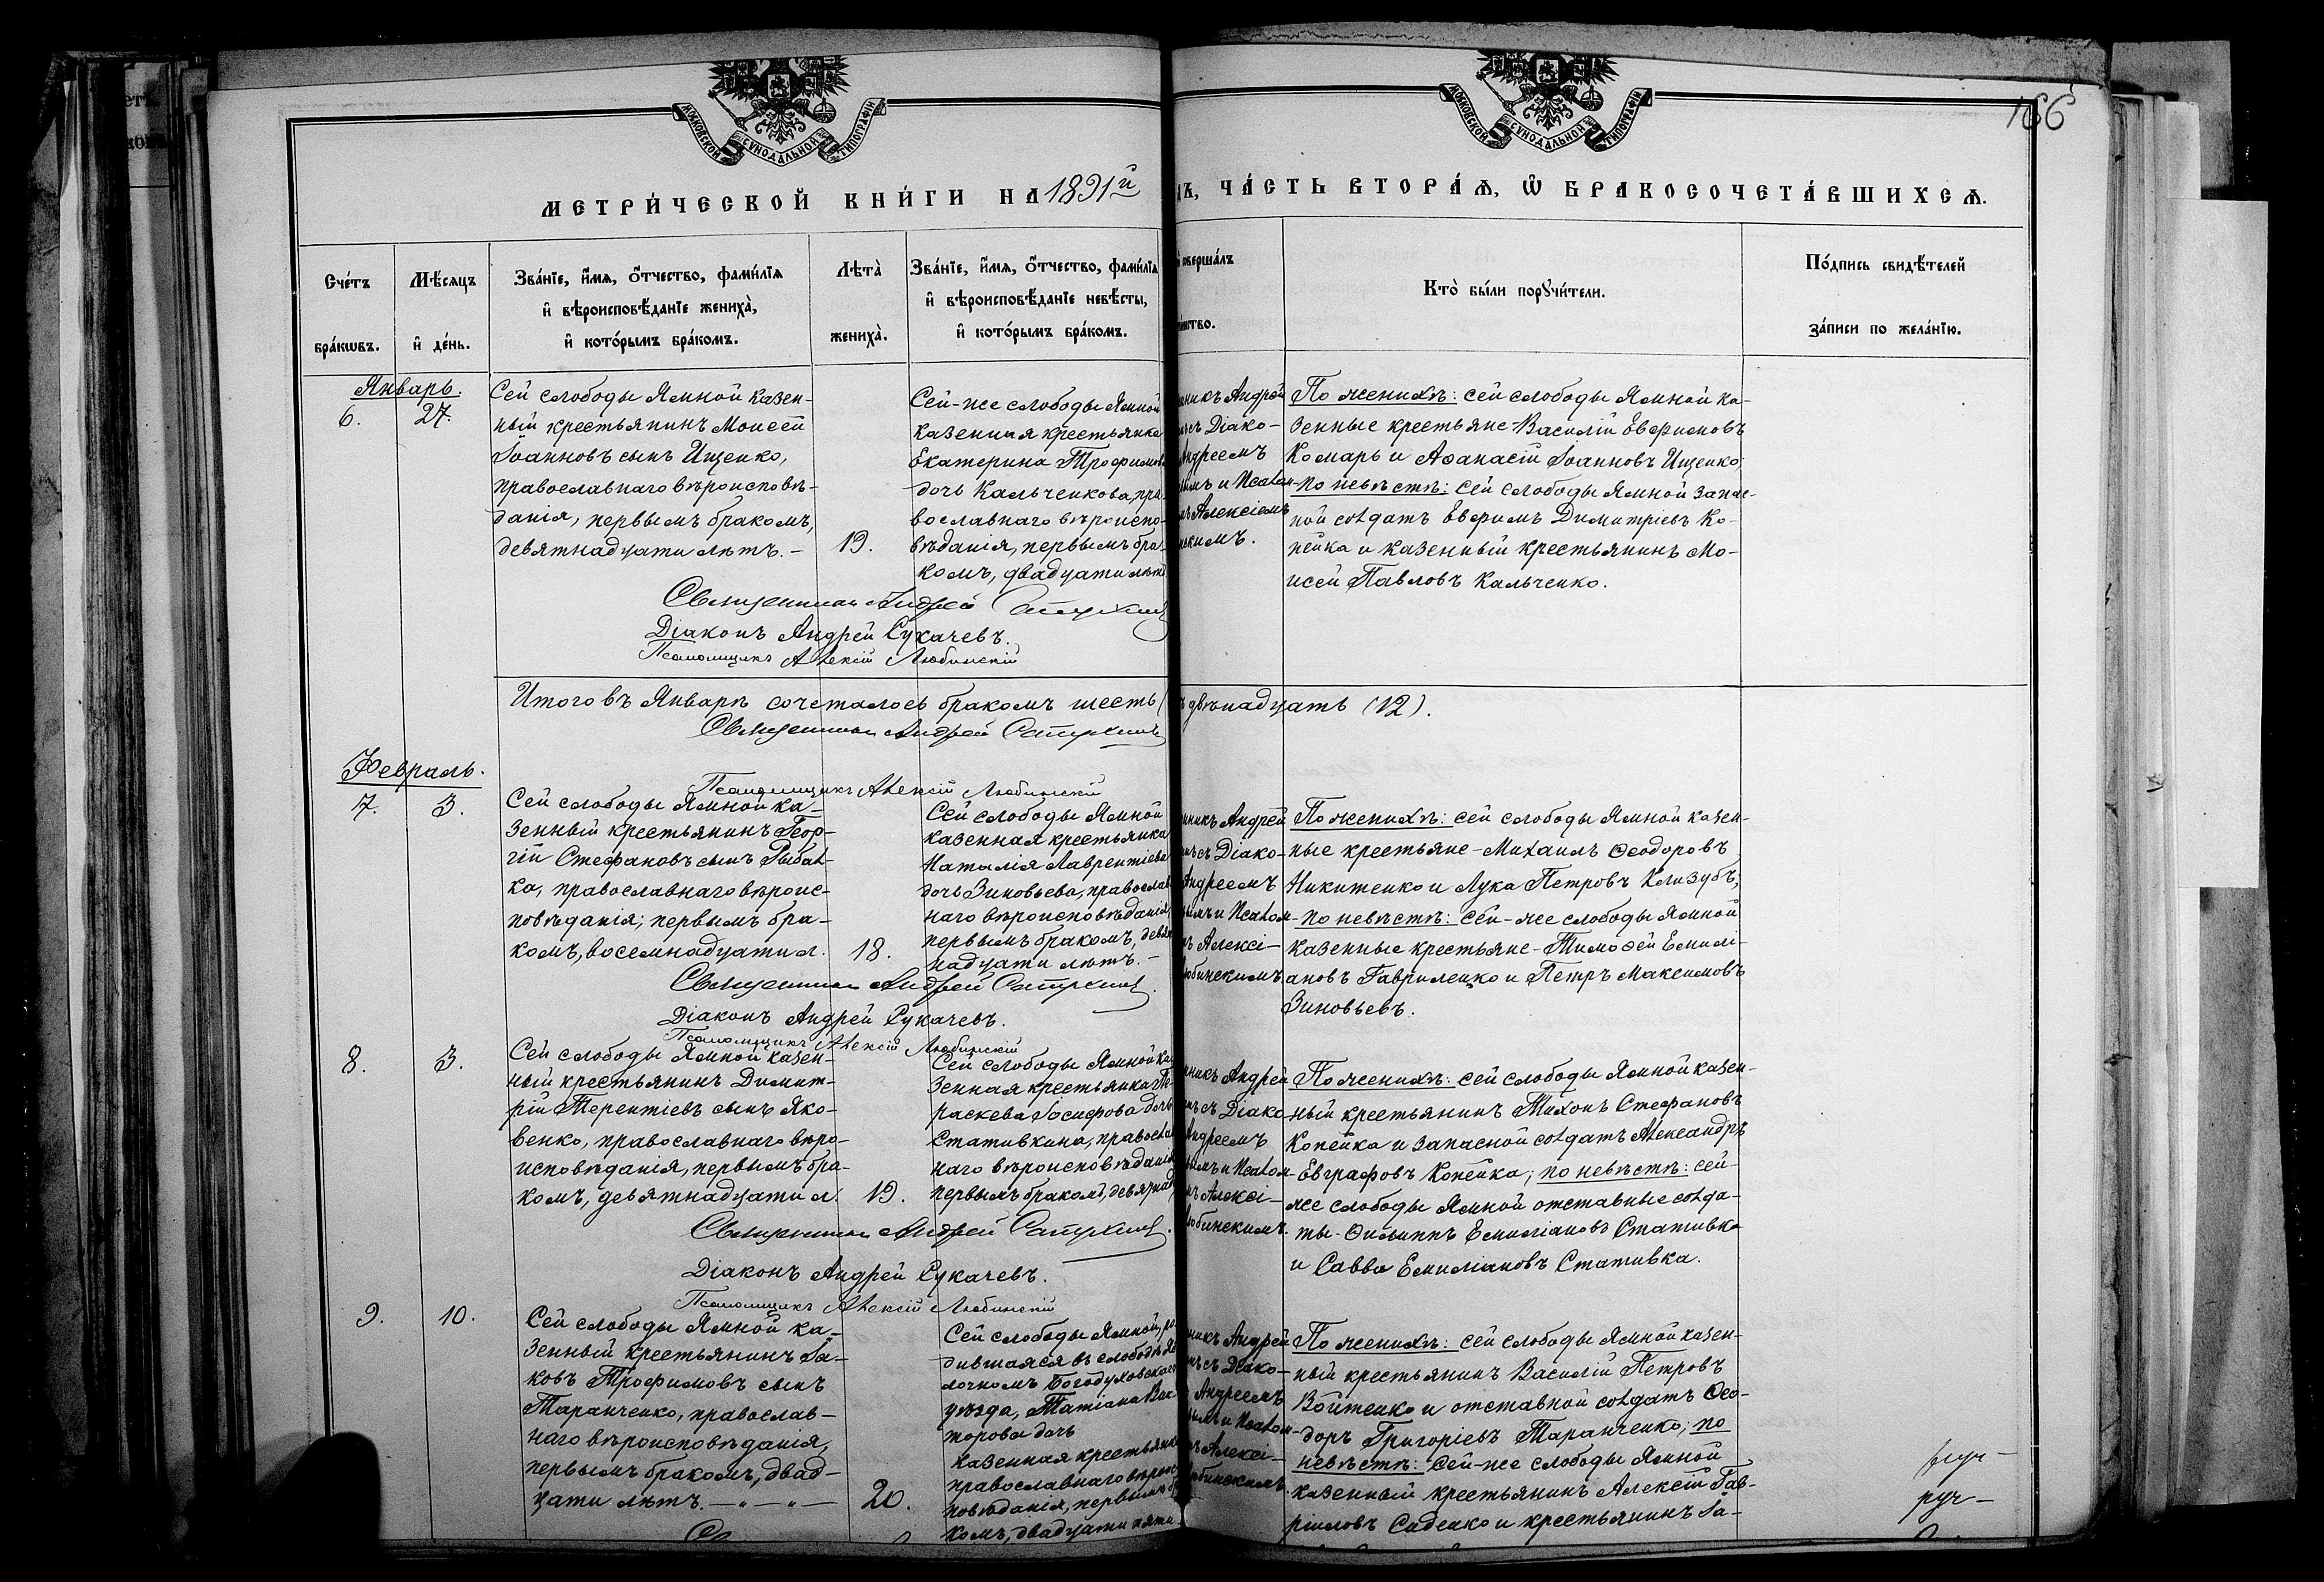 166
МОСКОВСКОЙ СѴНОДАЛЬНОЙ ТИПОГРАФІИ
МОСКОВСКОЙ СѴНОДАЛЬНОЙ ТИПОГРАФІИ
МЕТРИ́ЧЕСКОЙ КНИ́ГИ НА 1891й
ДЪ, ЧА́СТЬ ВТОРА́Ѧ, Ѽ БРАКОСОЧЕТА́ВШИХСѦ.
Сче́тъ бра́кѡвъ.
Мѣ́сяцъ и҆ де́нь.
Зва́нїе, и҆́мя, ѻ҆́тчество, фами́лїя
и҆ вѣроисповѣ́данїе жениха̀,
и҆ кото́рымъ бра́комъ.
Лѣта̀
жениха̀.
Зва́нїе, и҆́мя, ѻ҆́тчество, фами́лїя
и҆ вѣроисповѣ́данїе невѣ́сты,
и҆ кото́рымъ бра́комъ.
соверша́лъ
Кто̀ бы́ли порꙋчи́тели.
По́дпись свидѣ́телей
за́писи по жела́нїю.
Январь.
6. 27.
Сей слободы Ямной казен-
ный крестьянинъ Моисей
Іоанновъ сынъ Ищенко,
православнаго вѣроисповѣ-
данія, первымъ бракомъ,
девятнадцати лѣтъ. –
19.
Сей-же слободы Ямной
казенная крестьянка
Екатерина Трофимова
дочь Кальченкова, пра-
вославнаго вѣроиспо-
вѣданія, первымъ бра-
комъ, двадцати лѣтъ
никъ Андрей
съ Діако-
Андреемъ
и Псалом-
Алексіемъ
скимъ.
По женихѣ: сей слободы Ямной ка-
зенные крестьяне - Василій Евфимовъ
Комарь и Аѳанасій Іоанновъ Ищенко;
по невѣстѣ: сей слободы Ямной запас-
ной солдатъ Евфимъ Димитріевъ Ко-
пейка и казенный крестьянинъ Мо-
исей Павловъ Кальченко.
Священникъ Андрей
Діаконъ Андрей Сукачевъ.
Псаломщикъ Алексій Любинскій
Итого въ Январѣ сочеталось бракомъ шесть (
двѣнадцать (12).
Священникъ Андрей
Псаломщикъ Алексій Любинскій
Февраль.
7. 3.
Сей слободы Ямной ка-
зенный крестьянинъ Геор-
гій Стефановъ сынъ Рыбал-
ка, православнаго вѣроис-
повѣданія, первымъ бра-
комъ, восемнадцати л.
18.
Сей слободы Ямной
казенная крестьянка
Наталія Лаврентіева
дочь Зиновьева, православ
наго вѣроисповѣданія,
первымъ бракомъ, девят
надцати лѣтъ. –
никъ Андрей
съ Діако-
Андреемъ
и Псалом-
Алексі-
Любинскимъ
По женихѣ: сей слободы Ямной казен-
ные крестьяне - Михаилъ Ѳеодоровъ
Никитенко и Лука Петровъ Клизубъ;
по невѣстѣ: сей-же слободы Ямной
казенные крестьяне - Тимоѳей Емилі-
ановъ Гавриленко и Петръ Максимовъ
Зиновьевъ.
Священникъ Андрей
Діаконъ Андрей Сукачевъ.
Псаломщикъ Алексій Любинскій
8. 3.
Сей слободы Ямной казен-
ный крестьянинъ Димит-
рій Терентіевъ сынъ Яко-
венко, православнаго вѣро-
исповѣданія, первымъ бра-
комъ, девятнадцати л.
19.
Сей слободы Ямной ка
зенная крестьянка Па-
раскева Іосифова дочь
Стативкина, православ
наго вѣроисповѣданія
первымъ бракомъ, девятнад
никъ Андрей
съ Діако
Андреемъ
и Псалом-
Алексі-
Любинскимъ.
По женихѣ: сей слободы Ямной казен-
ный крестьянинъ Тихонъ Стефановъ
Копейка и запасной солдатъ Александръ
Евграфовъ Копейка; по невѣстѣ: сей-
же слободы Ямной отставные солда-
ты - Филиппъ Емиліановъ Стативка
и Савва Емиліановъ Стативка.
Священникъ Андрей
Діаконъ Андрей Сукачевъ.
Псаломщикъ Алексій Любинскій
9. 10.
Сей слободы Ямной ка-
зенный крестьянинъ Іа-
ковъ Трофимовъ сынъ
Таранченко, православ-
наго вѣроисповѣданія,
первымъ бракомъ, двад-
цати лѣтъ. – „ – „ –
20.
Сей слободы Ямной, ро
дившаяся въ слободѣ
Богодуховскаго
уѣзда, Татіана Вик
торова дочь
казенная крестьянка
православнаго вѣроис
повѣданія, первымъ бр
комъ, двадцати пяти
никъ Андрей
съ Діако-
Андреемъ
и Псалом-
Алексі-
Любинскимъ.
По женихѣ: сей слободы Ямной казен-
ный крестьянинъ Василій Петровъ
Войтенко и отставной солдатъ Ѳео-
доръ Григоріевъ Таранченко; по
невѣстѣ: сей-же слободы Ямной
казенный крестьянинъ Алексій Гав-
ріиловъ и крестьянинъ Іа-
руч-